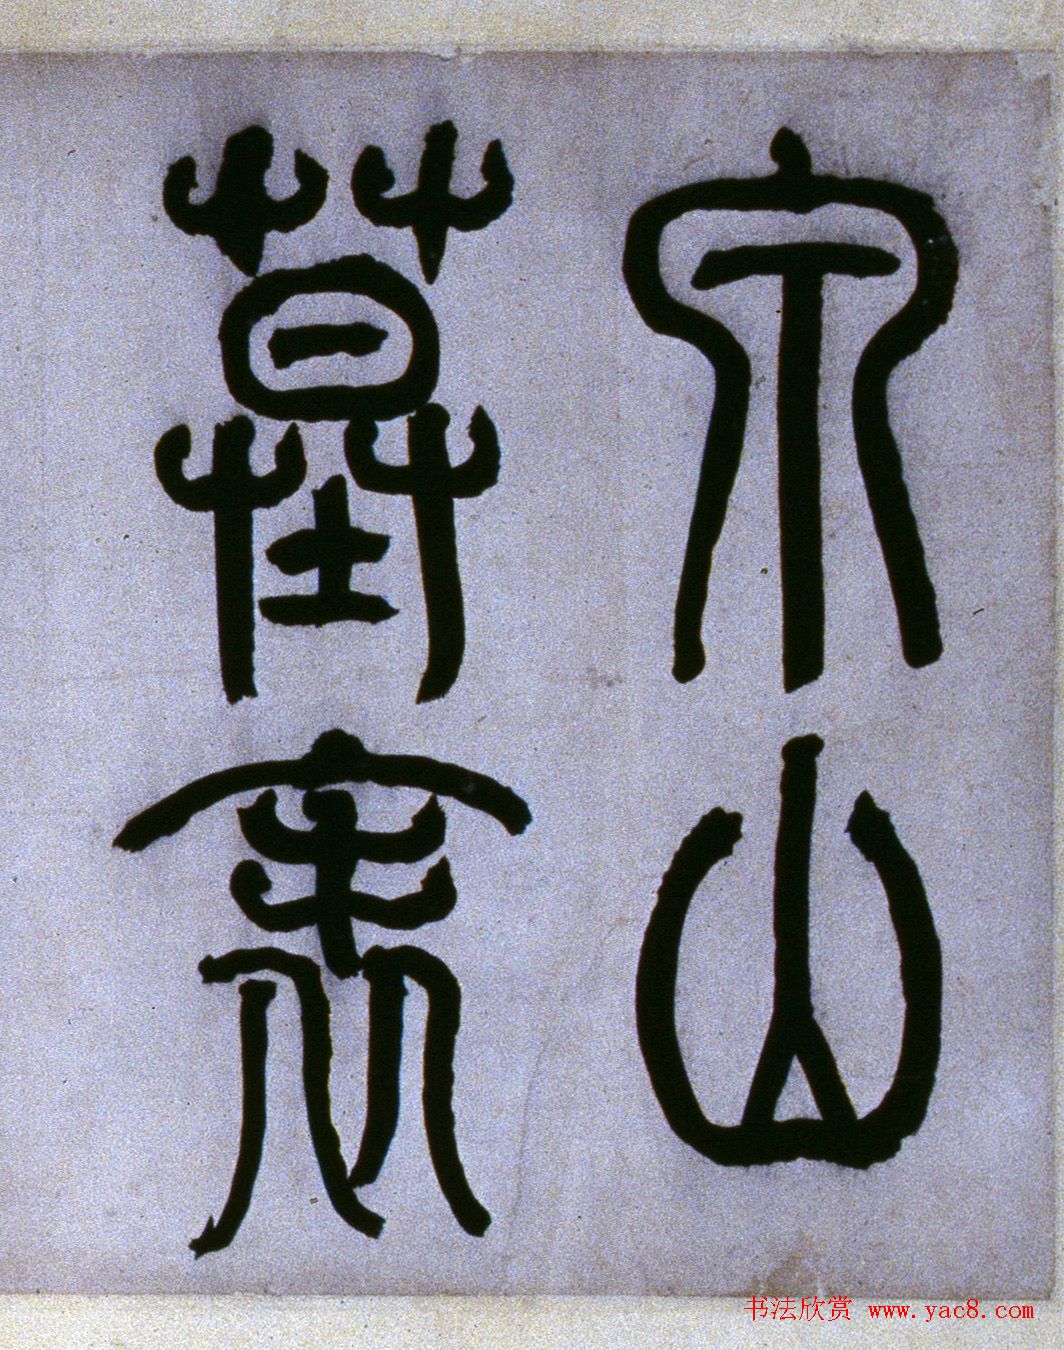 山
墓表
书法欣赏 www.yac8.com